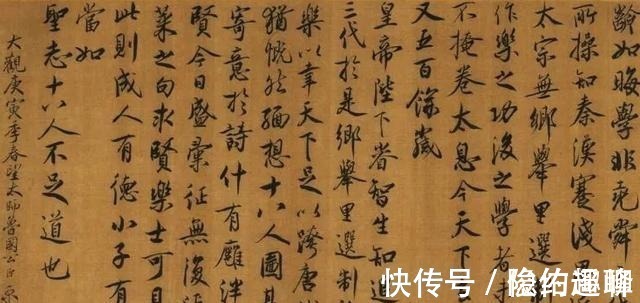 齡如晦學非堯舜
所操知秦漢蹇淺
太宗無鄉舉里選
作樂之功後之學者
不掩卷太息今天下
又五百餘歲
皇帝陛下睿智生知追
三代於是鄉舉里選制
樂以幸天下足以跨唐
猶慨然緬想十八人圖其
寄意於詩什有廱泮
賢今日盛彙征無復
萊之句求賢樂士可見
此則成人有德小子有
當如
聖志十八人不足道也
大觀庚寅季春望太師魯國公臣京
快传号 /